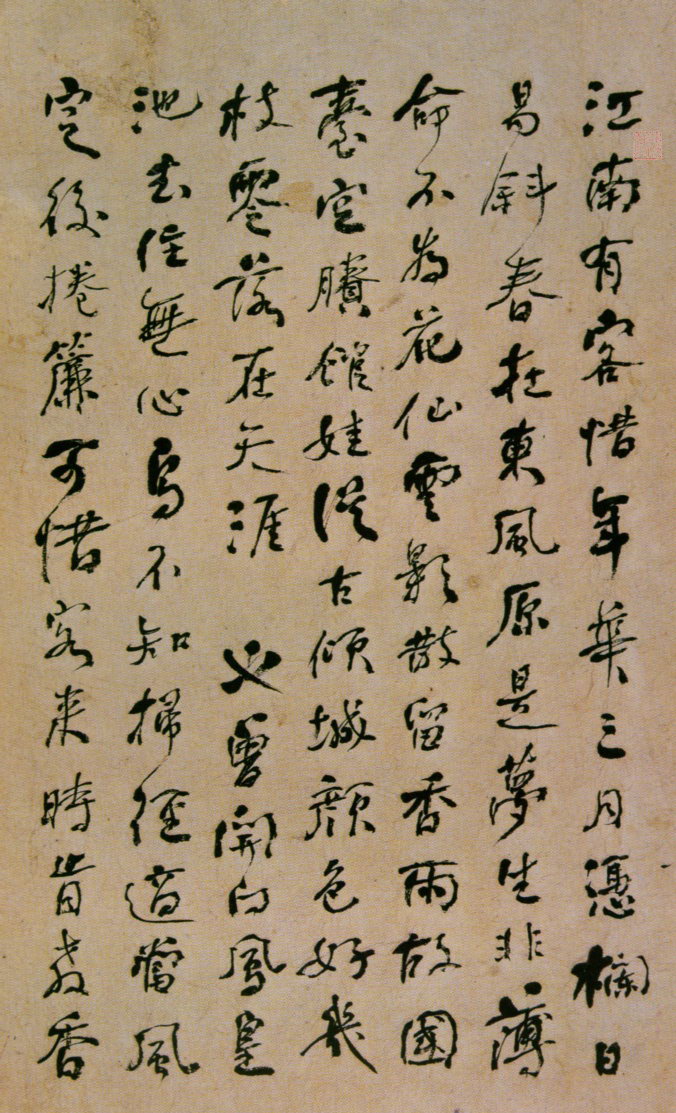 江南有客惜年華三月憑欄日
易斜春在東風原是夢生非薄
命不為花仙雲影散留香雨故國
臺空賸館娃從古傾城顏色好幾
枝零落在天涯　也曾開向鳳皇
池去住無心鳥不知掃徑適當風
定後捲簾可惜客來時肯教香